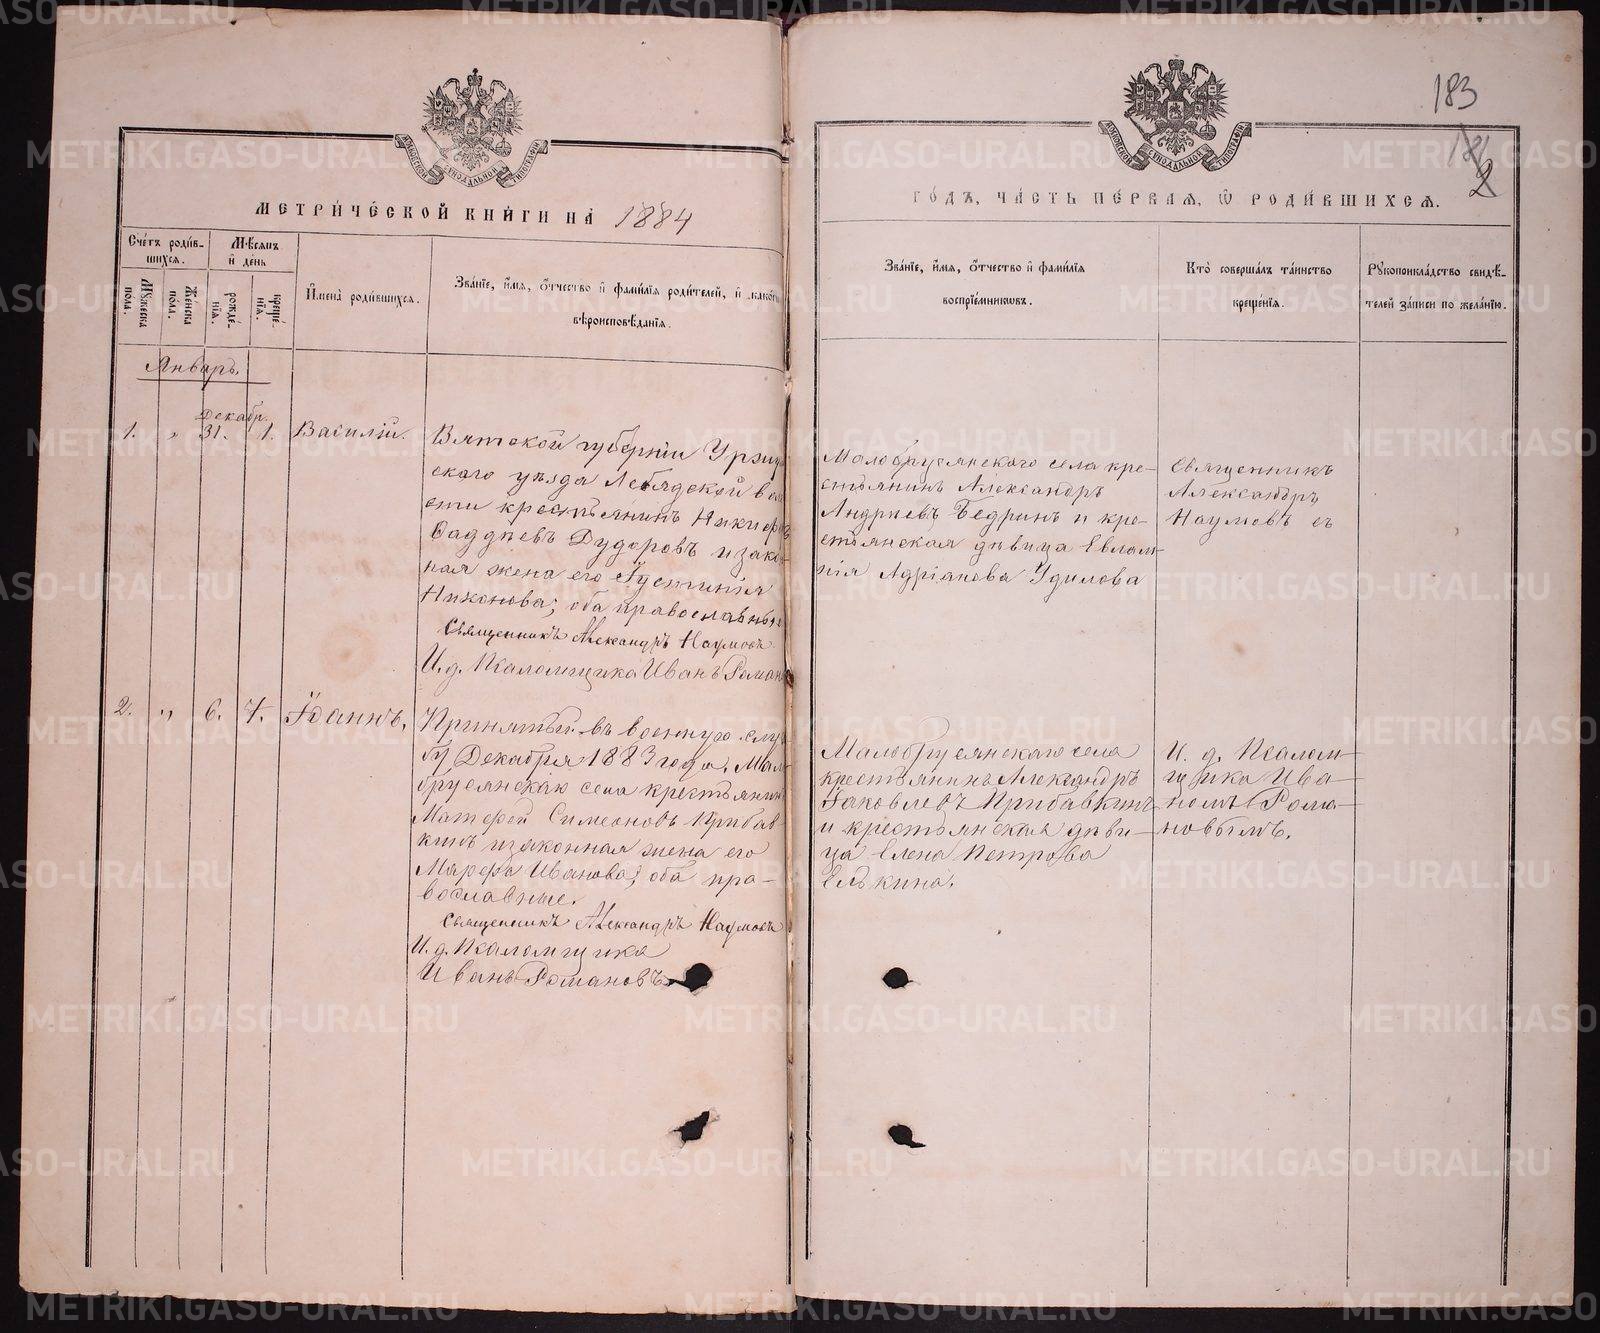 183
182
2
МОСКОВСКОЙ СѴНОДАЛЬНОЙ ТИПОГРАФІИ
МОСКОВСКОЙ СѴНОДАЛЬНОЙ ТИПОГРАФІИ
МЕТРИ́ЧЕСКОЙ КНИ́ГИ НА 1884
ГО́ДЪ, ЧА́СТЬ ПЕ́РВАЯ, Ѡ РОДИ́ВШИХСЯ.
Сче́тъ роди́в-
шихся.
Мѣ́сяцъ
и҆ де́нь
Му́жеска
пола.
Же́нска
пола.
рожде́-
нїя.
креще́-
нїя.
И҆мена̀ роди́вшихся.
Зва́нїе, и҆́мя, ѻ҆́тчество и҆ фами́лїя роди́телей, и҆ како́гѡ
вѣроисповѣ́данїя.
Зва́нїе, и҆́мя, ѻ҆́тчество и҆ фами́лїя
воспрїе́мниковъ.
Кто̀ соверша́лъ та́инство
креще́нїя.
Рукоприкла́дство свидѣ́-
телей за́писи по жела́нїю.
Январь.
Декабр.
1. „ 31. 1. Василій.
Вятской губерніи Уржум
скаго уѣзда Лебядской вол
сти крестьянинъ Никифоръ
Ѳаддѣевъ Дудоровъ и закон
ная жена его Іустинія
Никонова; оба православные
Священникъ Александръ Наумовъ
И. д. Псаломщика Иванъ Роман
Малобрусянскаго села кре-
стьянинъ Александръ
Андреевъ Бедринъ и кре-
стьянская дѣвица Евлам-
пія Адріанова Удилова
Священникъ
Александръ
Наумовъ съ
2. „ 6. 7. Іоаннъ.
Принятый въ военную служ
бу Декабря 1883 года, Мало
брусянскаго села крестьянин
Матѳей Симеоновъ Прибав
кинъ и законная жена его
Марѳа Иванова; оба пра-
вославные.
Священникъ Александръ Наумовъ
И. д. Псаломщика
Иванъ Романовъ
Малобрусянскаго села
крестьянинъ Александръ
Іаковлевъ Прибавкинъ
и крестьянская дѣви-
ца Елена Петрова
Елькина.
И. д. Псалом-
щика Ива-
номъ Рома-
новымъ.
METRIKI.GASO-URAL.RU